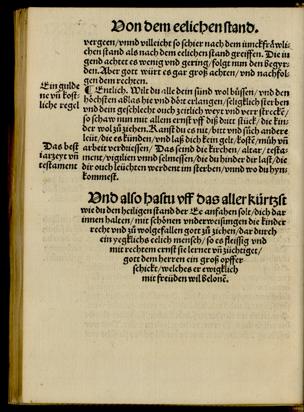 Von dem eelichen stand.
vergeen/vnnd villeicht so schier nach dem iunckfröwli-
chen stand als nach dem eelichen stand greiffen. Die iu-
gend achtet es wenig vnd gering/folgt nun den begyr-
den. Aber gott würt es gar groß achten/vnd nachfol-
gen dem rechten.
Ein guldene
vn̄ köst-
liche regel
¶ Entlich. Wilt du alle dein sünd wol büssen/vnd den
höchsten aßlas hie vnd dört erlangen/seligklich sterben
vnd dem geschlecht ouch zeitlich weyt vnd verr strecke/
so schaw nun mit allem ernst vff diß stuck/die kin-
der wol zu ziehen. Kanst du es nit/bitt vnd such andere
leüt/die es künden/vnd laß dich kein gelt/kost/müh vn̄
arbeit verdriessen/Das seind die kirchen/altar/testa-
Das best
testament
ment/vigilien vnnd selmessen/die du hinder dir last/die
dir ouch leüchten werdent im sterben/vnnd wo du hyn-
kommest.
Vnd also hastu vff das aller kürtzst
wie du den heiligen stand der Ee anfahen solt/dich dar
innen halten/mit schönen vnderweisungen die kinder
recht vnd zu wolgefallen gott zu ziehen/dar durch
ein yegklichs eelich mensch/so es fleissig vnd
mit rechtem ernst sie lernet vn̄ züchtiget/
gott dem herren ein groß opffer
schickt/welches er ewigklich
mit freüden wil belone.